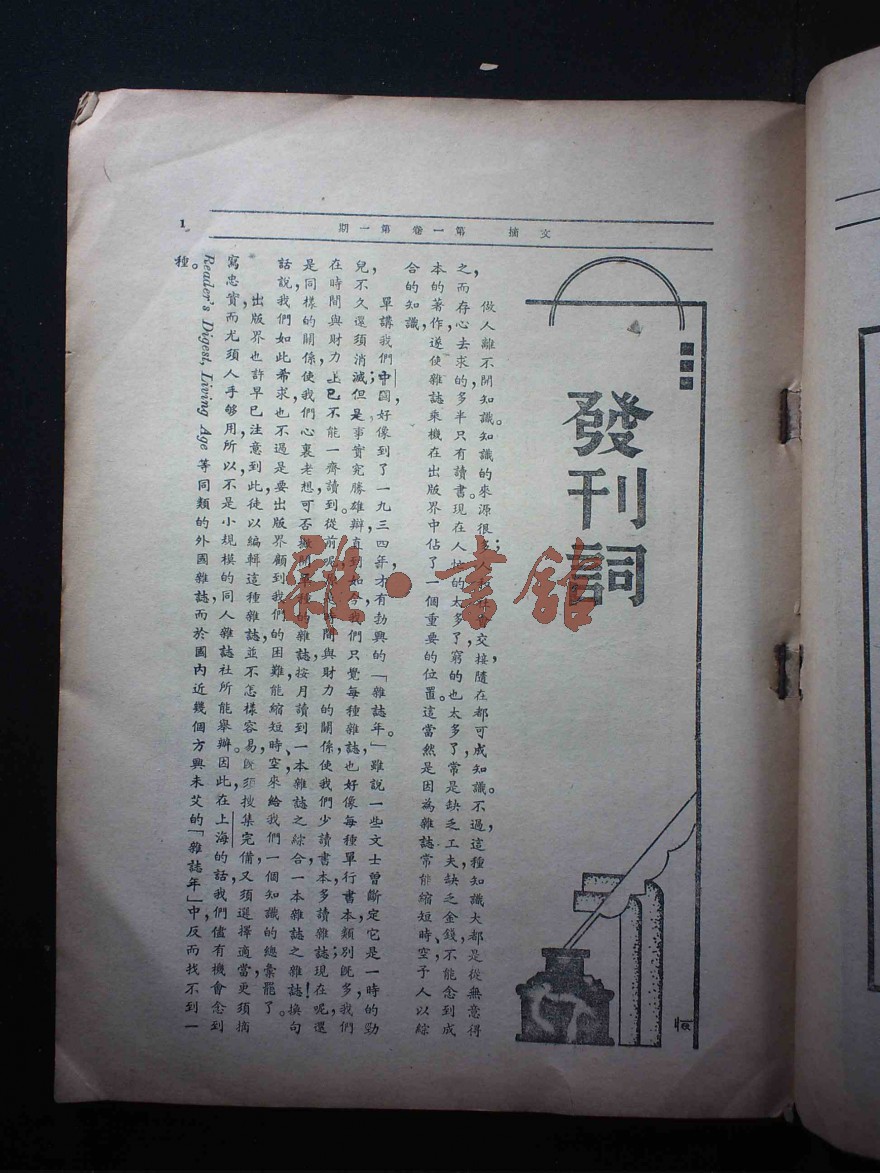 文摘 第一卷 第一期
1
發刊詞
做人離不開知識。知識的來源很多;人和社會交接,隨在都可成知識。不過,這種知識大都是從無意得
之,而存心去求的,多半只有讀書。現在人忙的太多了,窮的也太多了,常是缺乏工夫,缺乏金錢,不能念到成
本的著作,遂使雜誌乘機在出版界中佔了一個重要的位置。這當然是因為雜誌常能縮短時、空,予人以綜
合的知識,
單講我們中國,好像到了一九三四年,才有勃興的「雜誌年。」雖說一些文士曾斷定它是一時的勁
兒,不久還須消滅;但是事實究勝雄辯,直到如今,我們只覺每種雜誌,也好像每種單行書本,類別既多,我們
在時間與財力上,已不能一齊讀到。從前呢,是時間與財力的關係,使我們少讀書本,多讀雜誌;現在呢,還
是同樣的關係,使我們心裏老想,可否撇開各種的雜誌,按月讀到一本雜誌之綜合,一本雜誌之雜誌!換句
話說,我們如此希求,也不過是要出版界顧到我們的困難,能縮短時、空,來給我們一個知識的總彙罷了。
出版界也許早已注意到此,徒以編輯這種雜誌,並不怎樣容易,既須搜集完備,又須選擇適當,更須摘
寫忠實,而尤須人手够用,所以不是小規模的同人雜誌社所能舉辦。因此,在上海的話,我們儘有機會念到
Reader's Digest, Living Age 等同類的外國雜誌,而於國內近幾個方興未艾的「雜誌年」中,反而找不到一
種。
雜·書館